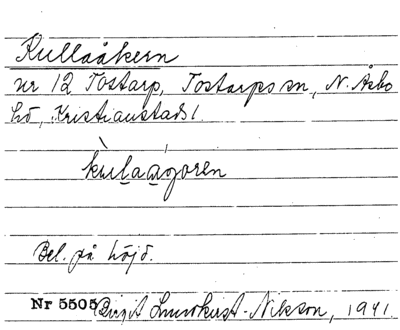 Kullaåkern
nr 12 Tostarp, Tostarps sn, N. Åsbo
hd, Kristianstads l.
kùlaagóren
Bel. på höjd.
Nr 5505 Birgit Lundkvist-Nilsson, 1941.